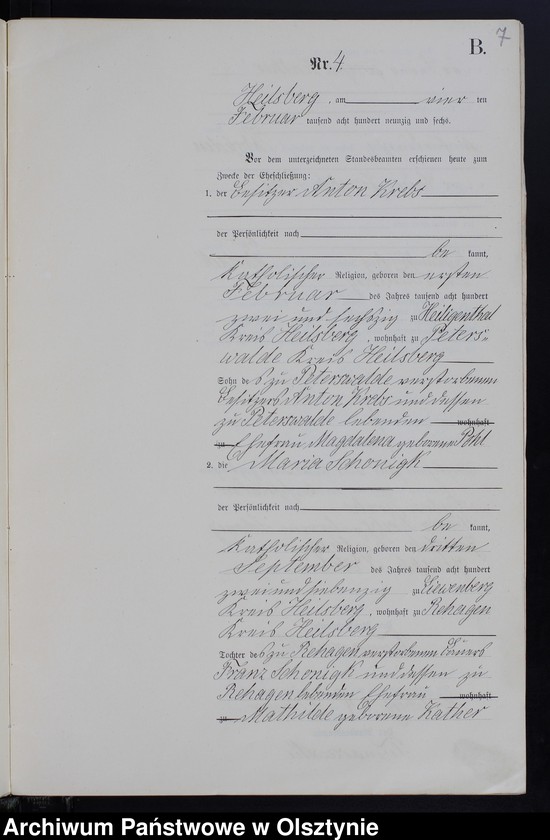 7
B.
Nr. 4.
Heilsberg, am vier ten
Februar tausend acht hundert neunzig und sechs.
Vor dem unterzeichneten Standesbeamten erschienen heute zum
Zwecke der Eheschließung:
1. der Besitzer Anton Krebs
der Persönlichkeit nach
be kannt,
katholischer Religion, geboren den ersten
Februar des Jahres tausend acht hundert
zwei und sechszig zu Heiligenthal
Kreis Heilsberg, wohnhaft zu Peters-
walde Kreis Heilsberg
Sohn des zu Peterswalde verstorbenen
Besitzers Anton Krebs und dessen
zu Peterswalde lebenden wohnhaft
zu Ehefrau Magdalena geborene Pohl
2. die Maria Schonigk
der Persönlichkeit nach
be kannt,
katholischer Religion, geboren den dritten
September des Jahres tausend acht hundert
zweiundsiebenzig zu Liewenberg
Kreis Heilsberg, wohnhaft zu Rehagen
Kreis Heilsberg
Tochter des zu Rehagen verstorbenen Bauers
Franz Schonigk und dessen zu
Rehagen lebenden Ehefrau wohnhaft
zu Mathilde geborene Kather
Archiwum Państwowe w Olsztynie